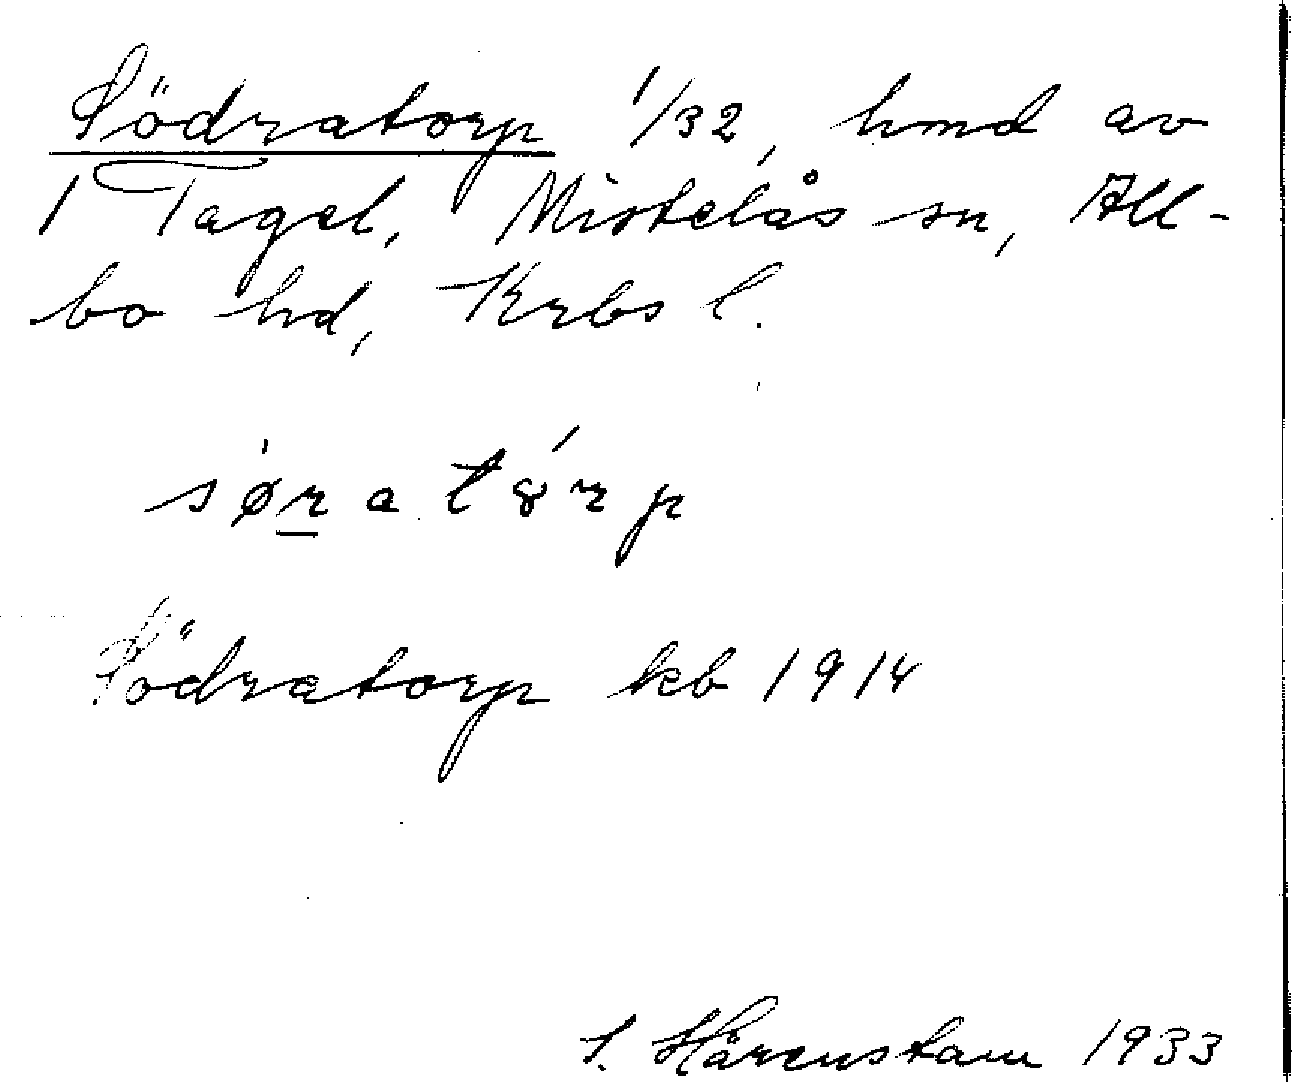 Södratorp 1/32, hmd av
1 Tagel, Mistelås sn, All-
bo hd, Krbs l.
sø̀ratȣ́rp
Södratorp kb 1914
S. Hårenstam 1933